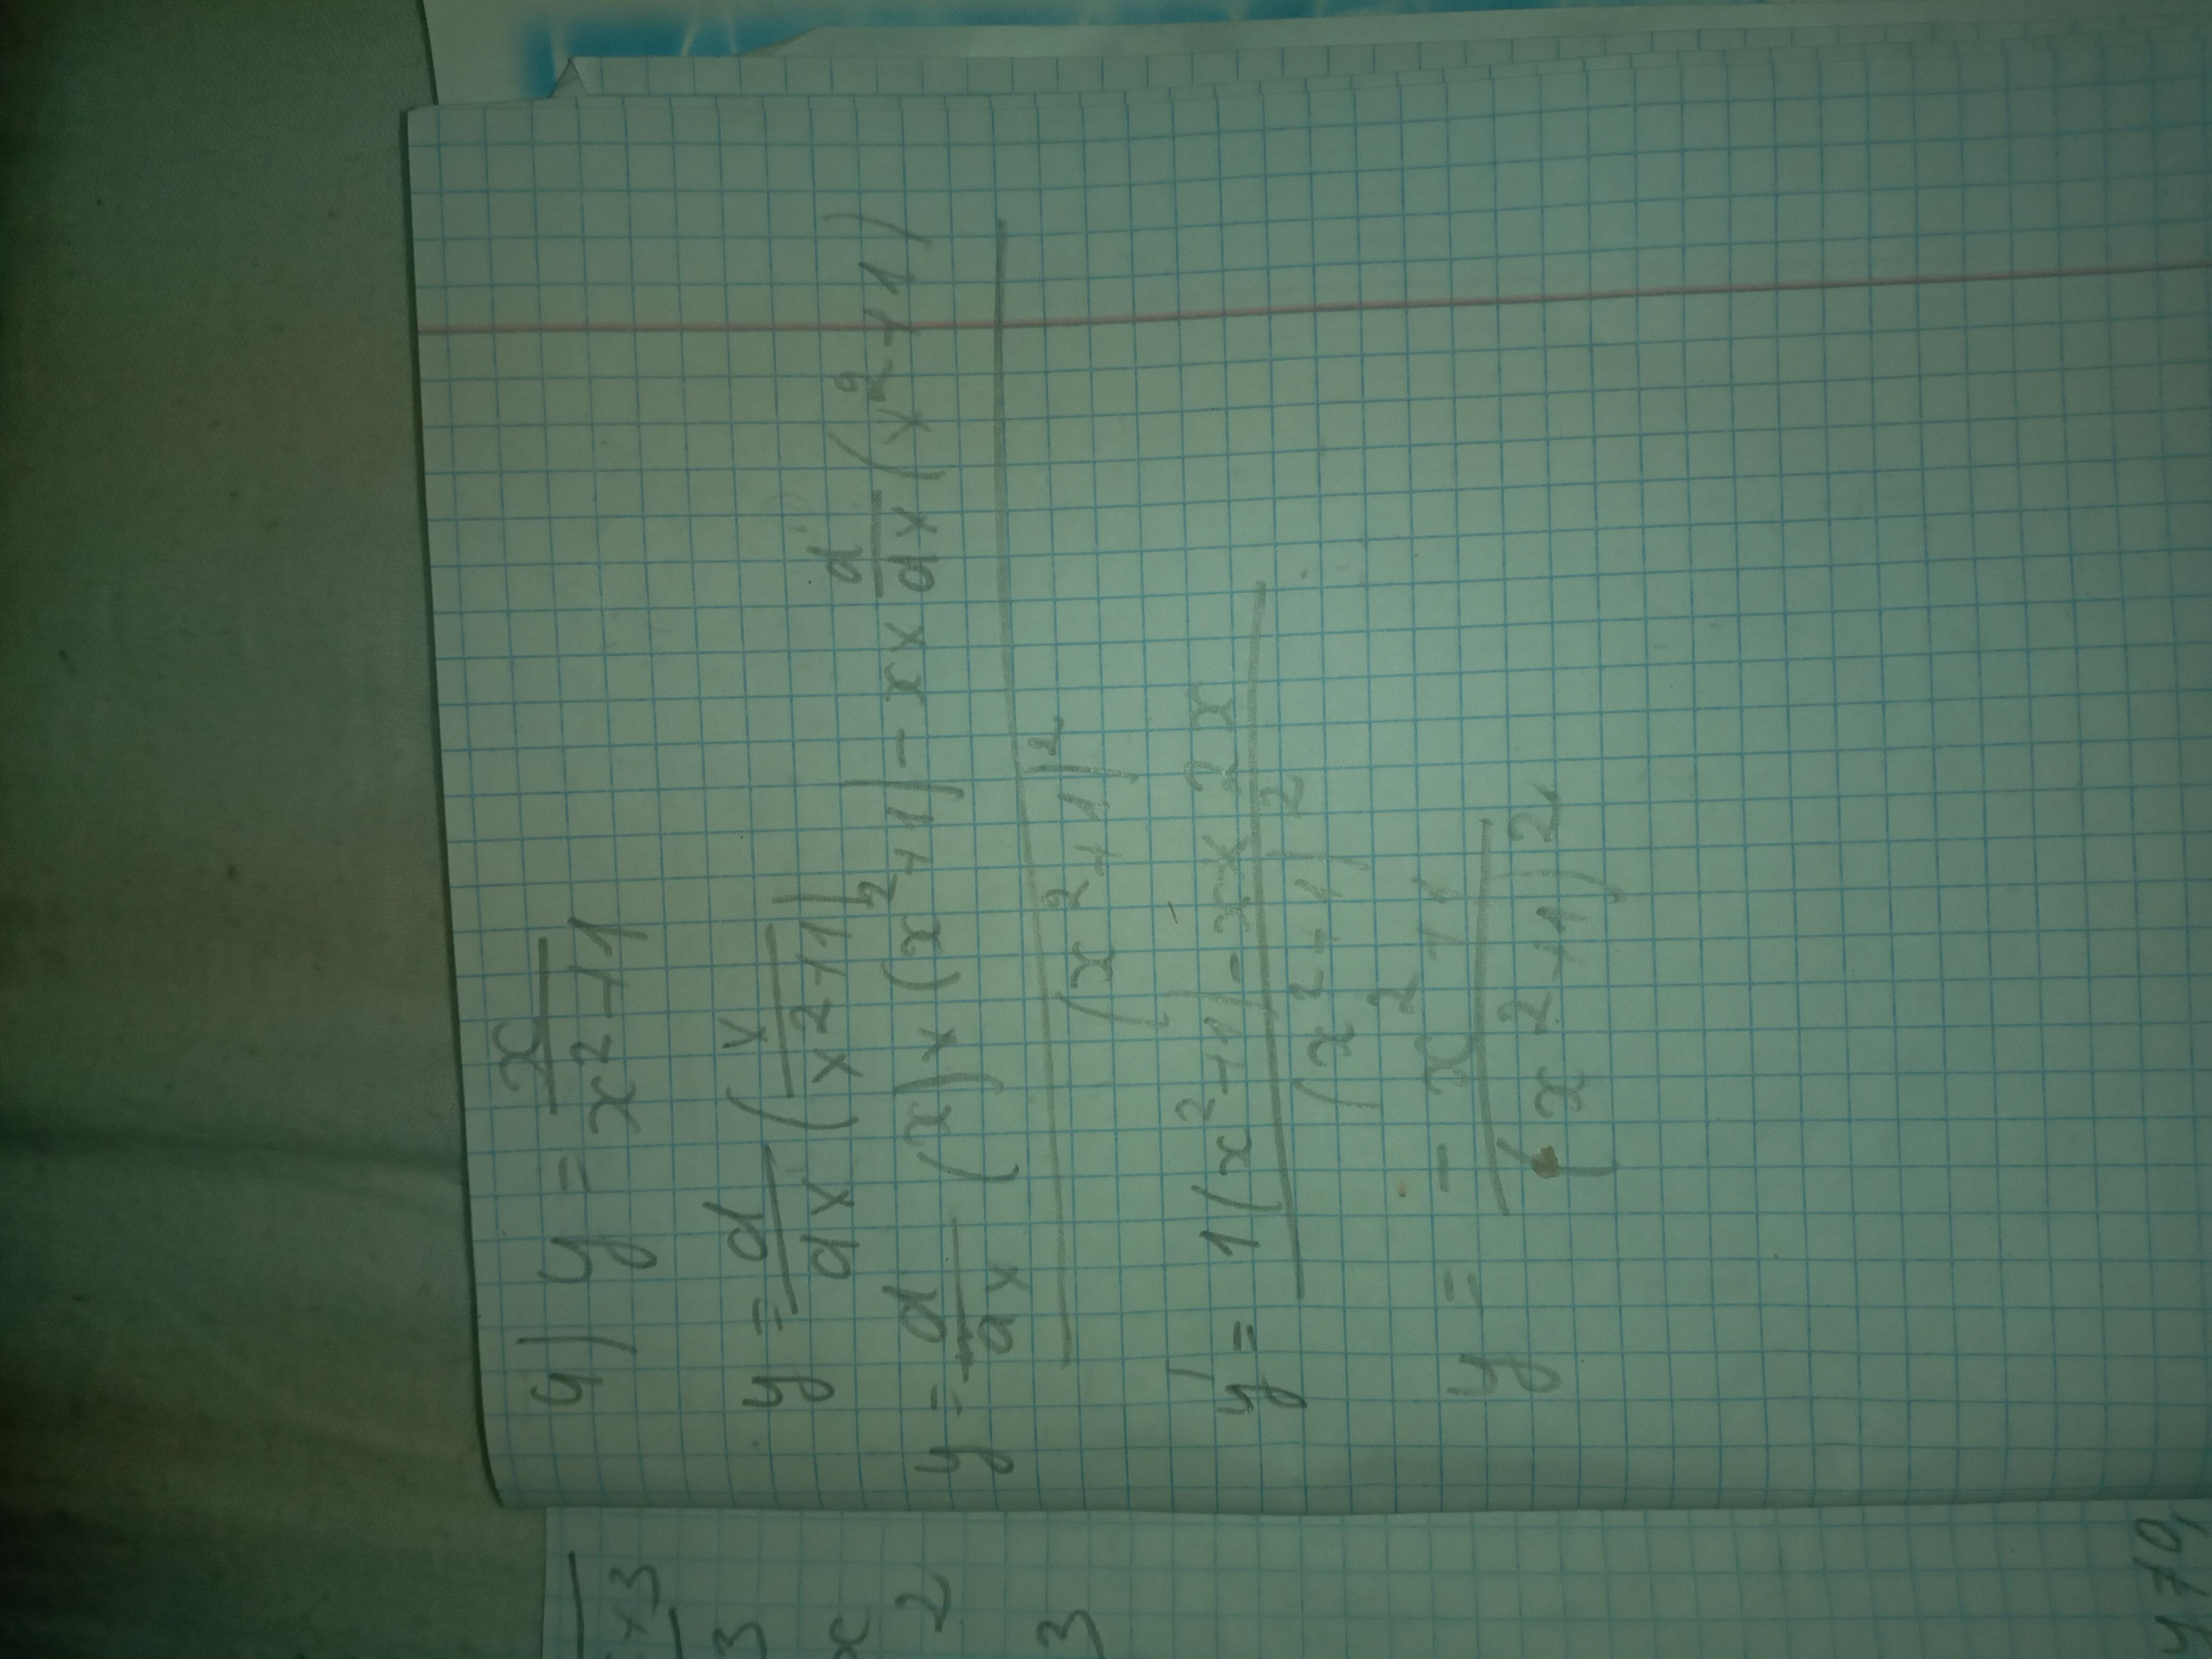 4) y = x / x² + 1
y = d/dx (x / x² + 1)
y = d/dx (x) × (x² + 1) - x × d/dx (x² + 1) / (x² + 1)²
y' = 1(x² + 1) - x × 2x / (x² + 1)²
y = - x² + 1 / (x² + 1)²
×3
3
x
2
3